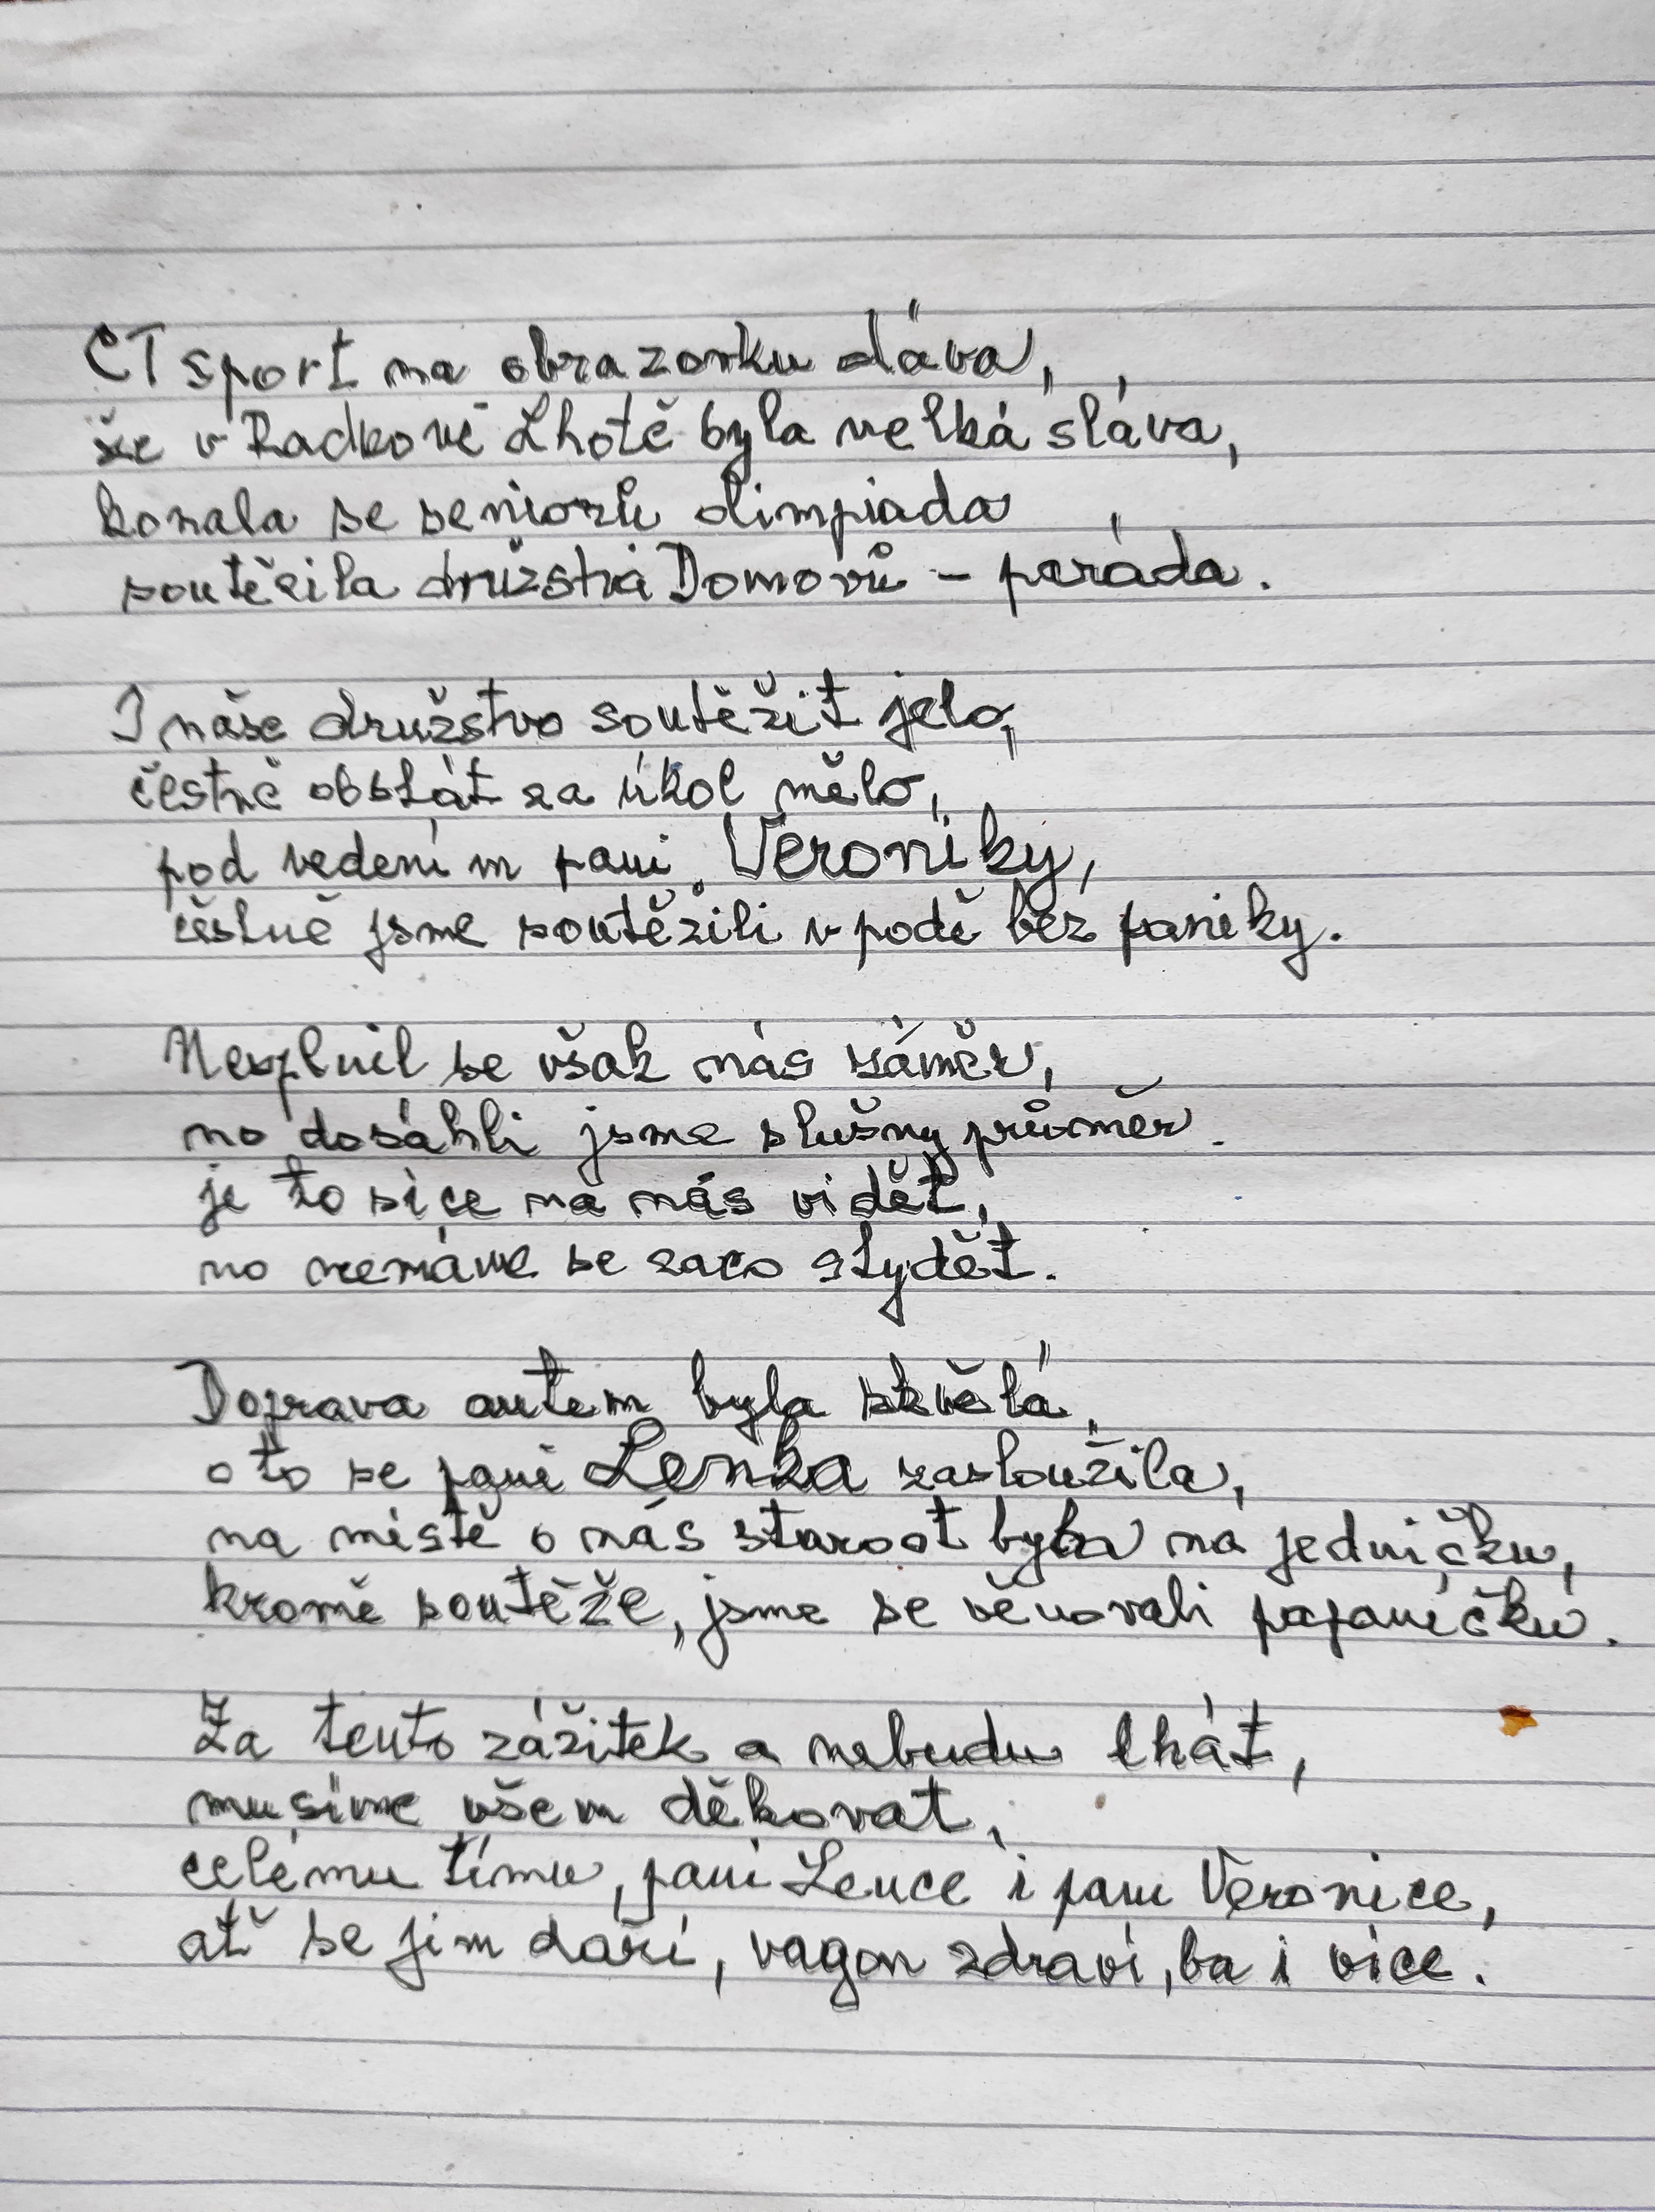 ČT sport na obrazovku dává,
že v Radkově Lhotě byla velká sláva,
konala se seniorů olimpiada
soutěžila družstva Domovů - paráda.
I naše družstvo soutěžit jelo,
čestně obstát za úkol mělo,
pod vedením paní Veroniky,
čestně jsme soutěžili v podě bez paniky.
Nesplnil se však nás záměr,
no dosáhli jsme slušny průměr.
je to sice na nás vidět,
no nemáme se zaco stydět.
Doprava autem byla skvělá,
o to se paní Lenka zasloužila,
na místě o nás starost byla na jedničku,
kromě soutěže, jsme se věnovali papaníčků.
Za tento zážitek a nebudu lhát,
musíme všem děkovat,
celému tímu, paní Lence i paní Veronice,
ať se jim daří, vagon zdraví, ba i více.